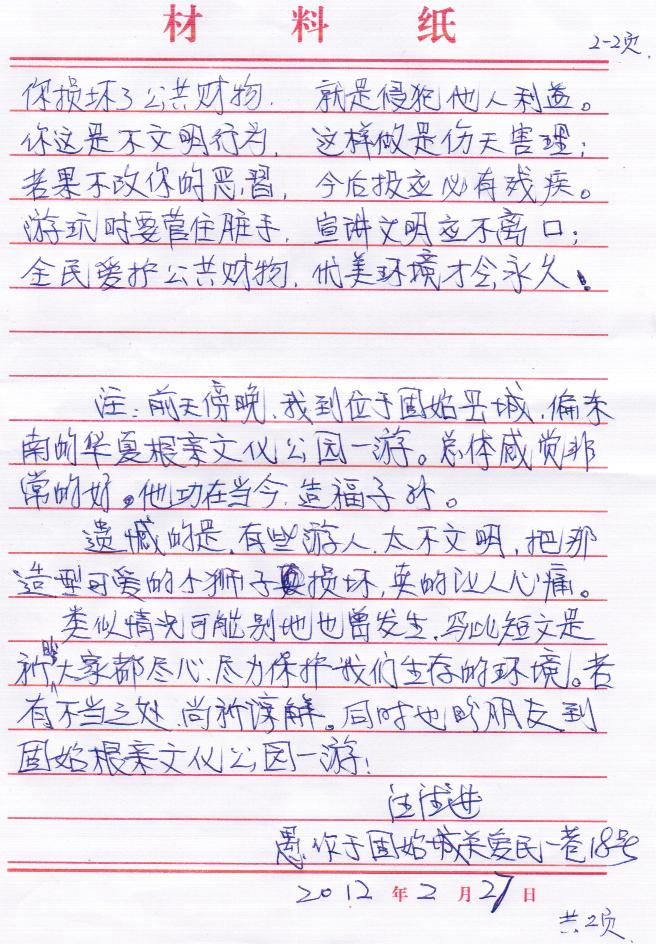 材料纸
2-2页
你损坏了公共财物. 就是侵犯他人利益。
你这是不文明行为, 这样做是伤天害理;
若果不改你的恶習, 今后报应必有残疾。
游玩时要管住脏手, 宣讲文明应不离口;
全民爱护公共财物, 优美环境才会永久!
注:前天傍晚,我到位于固始县城,偏东
南的华夏根亲文化公园一游。总体感觉非
常的好。他功在当今.造福子孙。
遗憾的是,有些游人.太不文明,把那
造型可爱的小狮子损坏,真的让人心痛。
类似情况可能别地也曾发生,写此短文是
祈盼大家都尽心.尽力保护我们生存的环境。若
有不当之处.尚祈谅解。同时也盼朋友到
固始根亲文化公园一游!
愚作于固始城关爱民一巷18号
2012年2月27日
共2页